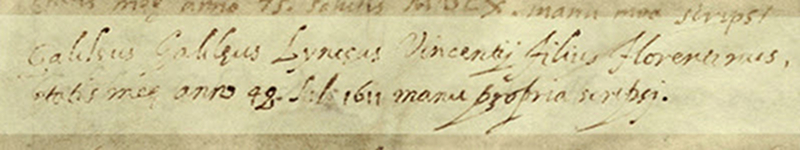 meę anno 75. salutis manu mea scripsi
Galileus Galileus Lynceus Vincentij filius Florentinus,
ętatis meę anno 48. Sal. 1611 manu propria scripsi.